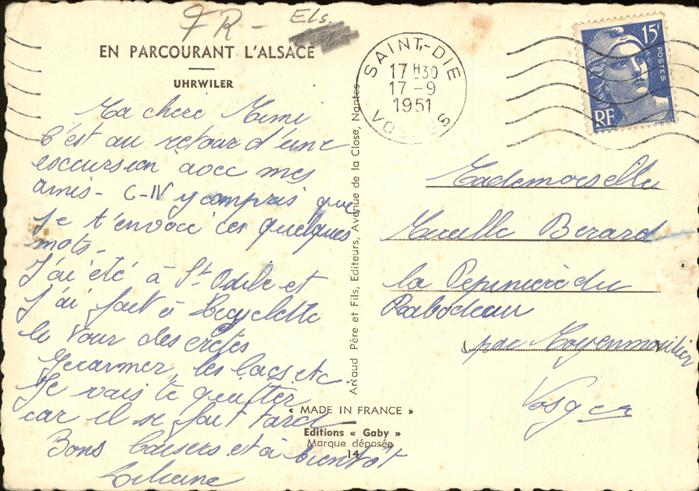 FR - Els.
EN PARCOURANT L'ALSACE
UHRWILER
Ma chere Mimi
C'est au retour d'une
excursion avec mes
amis - y compris que
je t'envoie ces quelques
mots.
J'ai été à St Odile et
j'ai fait à bicyclette
le tour des crêtes
Gérarmer, les lacs etc
Je vais te quitter
car il se fait tard
Bons baisers et à bientôt
Liliane
Arnaud Père et Fils, Editeurs, Avenue de la Close, Nantes
« MADE IN FRANCE »
Editions « Gaby »
Marque déposée
14
SAINT-DIE
17 H30
17 - 9
1951
VOSGES
15F
POSTES
RF
Mademoiselle
Berard
la Pépinière du
Rabodeau
par Moyenmoutier
Vosges